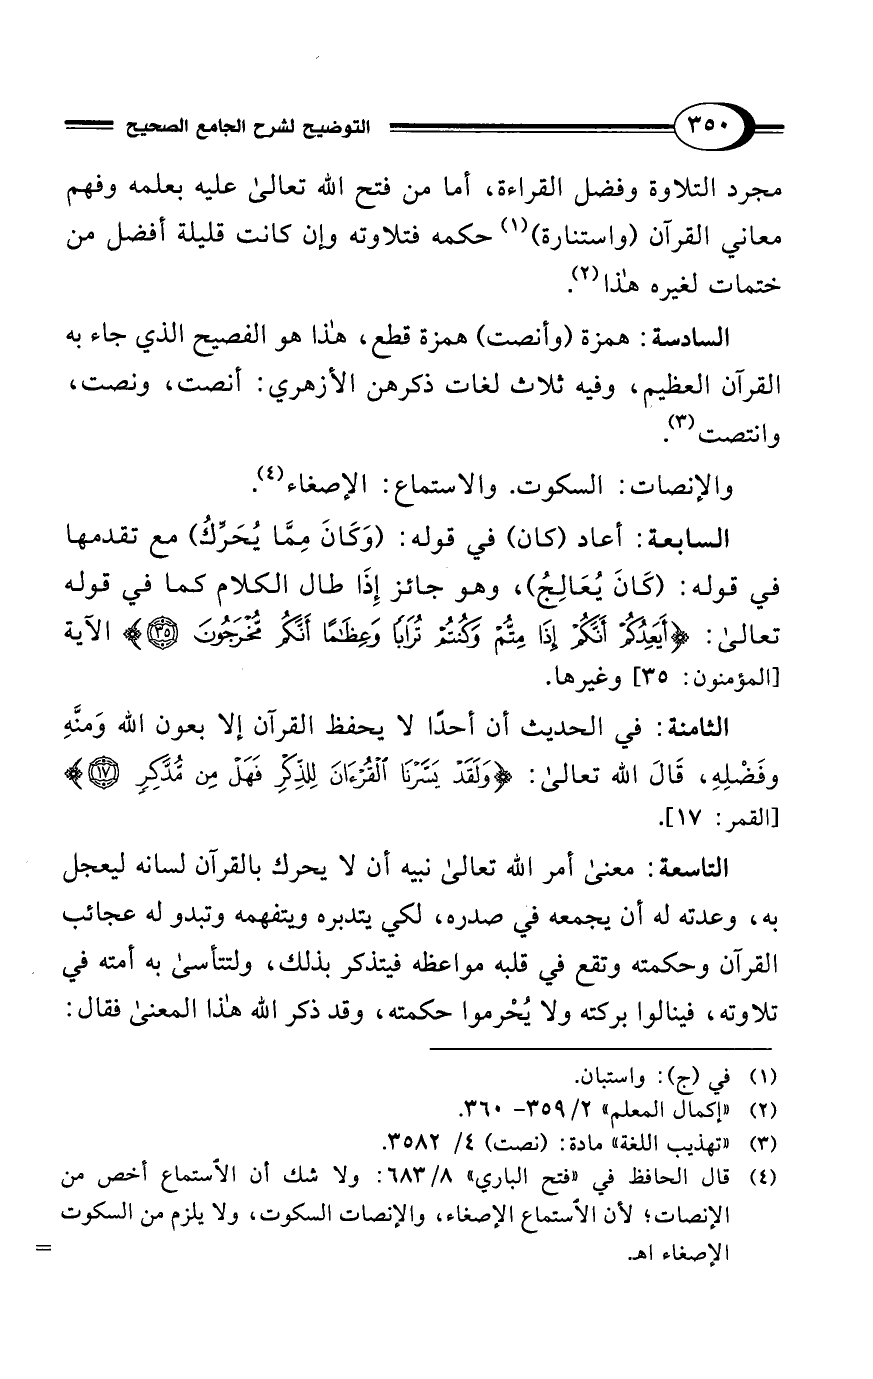 ٣٥٠ التوضيح لشرح الجامع الصحيح
مجرد التلاوة وفضل القراءة، أما من فتح الله تعالىٰ عليه بعلمه وفهم
معاني القرآن (واستنارة)(١) حكمه فتلاوته وإن كانت قليلة أفضل من
ختمات لغيره هذا(٢).
السادسة: همزة (وأنصت) همزة قطع، هذا هو الفصيح الذي جاء به
القرآن العظيم، وفيه ثلاث لغات ذكرهن الأزهري: أنصت، ونصت،
وانتصت(٣).
والإنصات: السكوت. والاستماع: الإصغاء(٤).
السابعة: أعاد (كان) في قوله: (وَكَانَ مِمَّا يُحَرِّكُ) مع تقدمها
في قوله: (كَانَ يُعَالِجُ)، وهو جائز إِذَا طال الكلام كما في قوله
تعالىٰ: ﴿أَيَعِدُكُمْ أَنَّكُمْ إِذَا مِتُّمْ وَكُنتُمْ تُرَابًا وَعِظَٰمًا أَنَّكُم مُّخْرَجُونَ ٣٥﴾ الآية
[المؤمنون: ٣٥] وغيرها.
الثامنة: في الحديث أن أحدًا لا يحفظ القرآن إلا بعون الله وَمنَّهِ
وفَضْلِهِ، قَالَ الله تعالىٰ: ﴿وَلَقَدْ يَسَّرْنَا ٱلْقُرْءَانَ لِلذِّكْرِ فَهَلْ مِن مُّدَّكِرٍ ١٧﴾
[القمر: ١٧].
التاسعة: معنىٰ أمر الله تعالىٰ نبيه أن لا يحرك بالقرآن لسانه ليعجل
به، وعدته له أن يجمعه في صدره، لكي يتدبره ويتفهمه وتبدو له عجائب
القرآن وحكمته وتقع في قلبه مواعظه فيتذكر بذلك، ولتتأسىٰ به أمته في
تلاوته، فينالوا بركته ولا يُحْرموا حكمته، وقد ذكر الله هذا المعنىٰ فقال:
(١) في (ج): واستبان.
(٢) «إكمال المعلم» ٢/ ٣٥٩- ٣٦٠.
(٣) «تهذيب اللغة» مادة: (نصت) ٤/ ٣٥٨٢.
(٤) قال الحافظ في «فتح الباري» ٨/ ٦٨٣: ولا شك أن الاستماع أخص من
الإنصات؛ لأن الاستماع الإصغاء، والإنصات السكوت، ولا يلزم من السكوت
الإصغاء اهـ. =